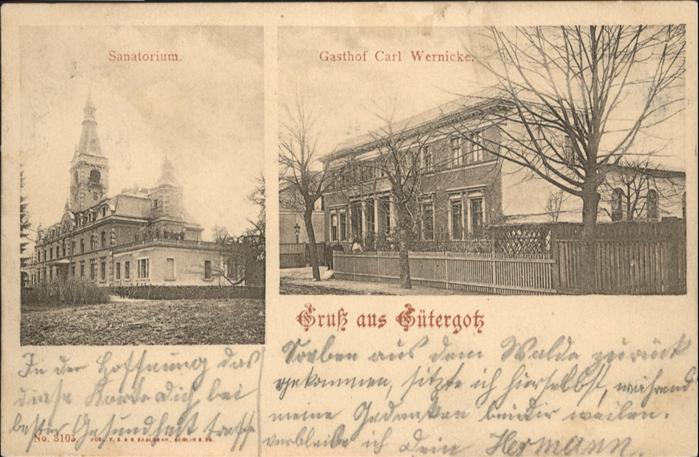 Sanatorium.
Gasthof Carl Wernicke.
Gruß aus Gütergotz
In der Hoffnung das
diese Karte Dich bei
bester Gesundheit
No. 3103
Soeben aus dem Walde zurück
gekommen, sitze ich hierselbst, während
meine Gedanken bei dir weilen.
verbleibe ich dein Hermann.